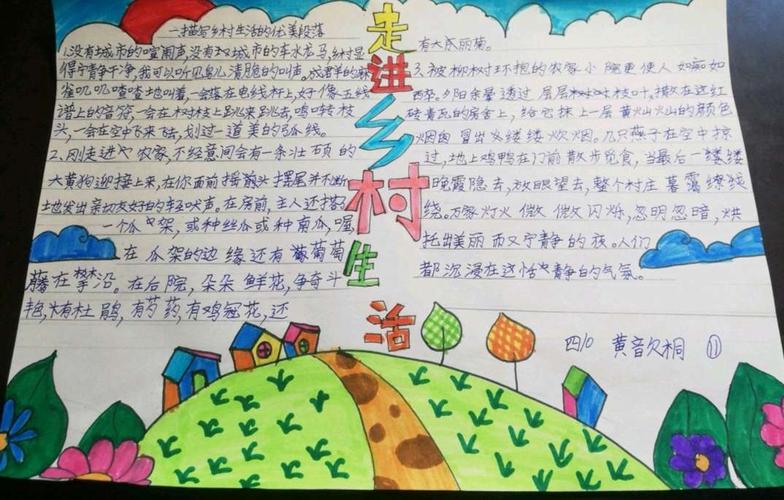 走进乡村生活
一描写乡村生活的优美段落
1.没有城市的喧闹声,没有城市的车水龙马,乡村显
得宁静干净,我可以听见鸟儿清脆的叫声,成群的麻
雀叽叽喳喳地叫着,一会落在电线杆上,好像五线
谱上的音符,一会在树枝上跳来跳去,鸣啭枝
头,一会在空中飞来飞去,划过一道美的弧线。
2.刚走进农家,不经意间会有一条壮硕的
大黄狗迎接上来,在你面前摇头摆尾并不断
地发出亲切友好的轻吠声。在房前,主人还搭
一个瓜架,或种丝瓜或种南瓜,喔
在瓜架的边缘还有葡萄
藤在攀沿。在后院,朵朵鲜花,争奇斗
艳,有杜鹃,有芍药,有鸡冠花,还
有大丽菊。
3.被柳树环抱的农家小院更使人如痴如
醉。夕阳余晕透过层层树枝叶,撒在这红
砖青瓦的房舍上,给它抹上一层黄灿灿的颜色
烟囱冒出缕缕炊烟。几只燕子在空中掠
过,地上鸡鸭在门前散步觅食,当最后一缕缕
晚霞隐去,放眼望去,整个村庄暮霭缭
绕。万家灯火微微闪烁,忽明忽暗,烘
托出美丽而又宁静的夜。人们
都沉浸在这恬静的气氛。
四10 黄音欠桐 11